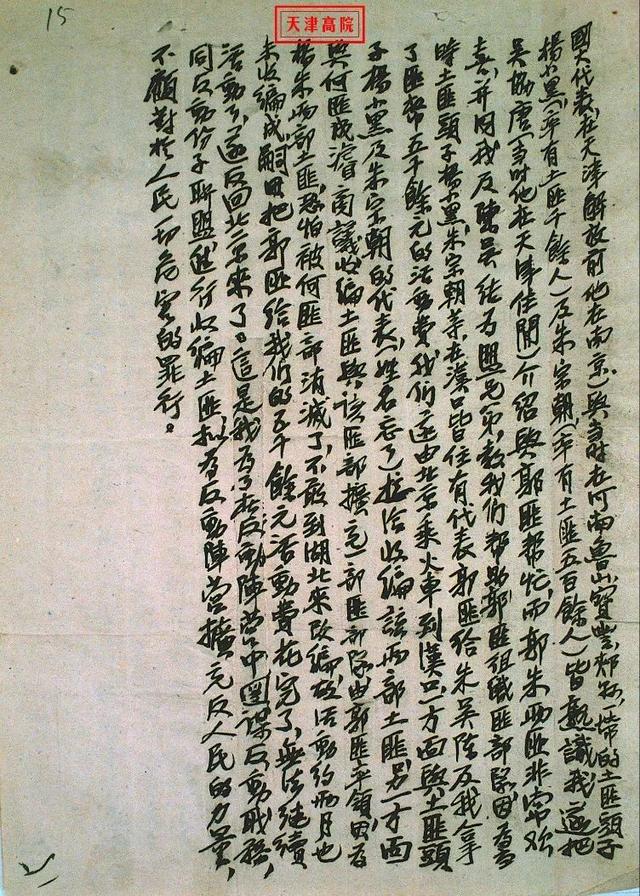 15
天津高院
國大代表，在天津解放前他在南京）與当时在河南魯山、寶豐、郏縣一带的土匪頭子
楊小黑（率有土匪千餘人）及朱宗朝（率有土匪五百餘人）皆認識我，遂把
吴協唐（当时他在天津住閒）介紹與郭匪帮忙，而郭朱两匪非常欢
喜，并同我及陳吴结为盟兄弟，教我们帮助郭匪组織匪部隊。因為
時土匪頭子楊小黑、朱宗朝等，在漢口皆住有代表，郭匪给朱吴陈及我拿
了匪幣五千餘元的活動費，我们遂由北京乘火車到漢口，一方面與土匪頭
子楊小黑及朱宗朝的代表（姓名忘了）接洽收编該两部土匪，另一方面
與何匪成濬商議收编土匪與該匪部擴充一部匪部隊由郭匪率領，因為
楊朱两部土匪，恐怕被何匪部消滅了，不敢到湖北来改编，故活動约两月也
未收编成，嗣因把郭匪给我们的五千餘元活動費花完了，無法继續
活動了，遂反回北京来了。這是我為了在反動陣营中圖谋反動职務，
同反動份子联盟進行收编土匪，拟為反動陣营擴充反人民的力量，
不顧對於人民一切危害的罪行。